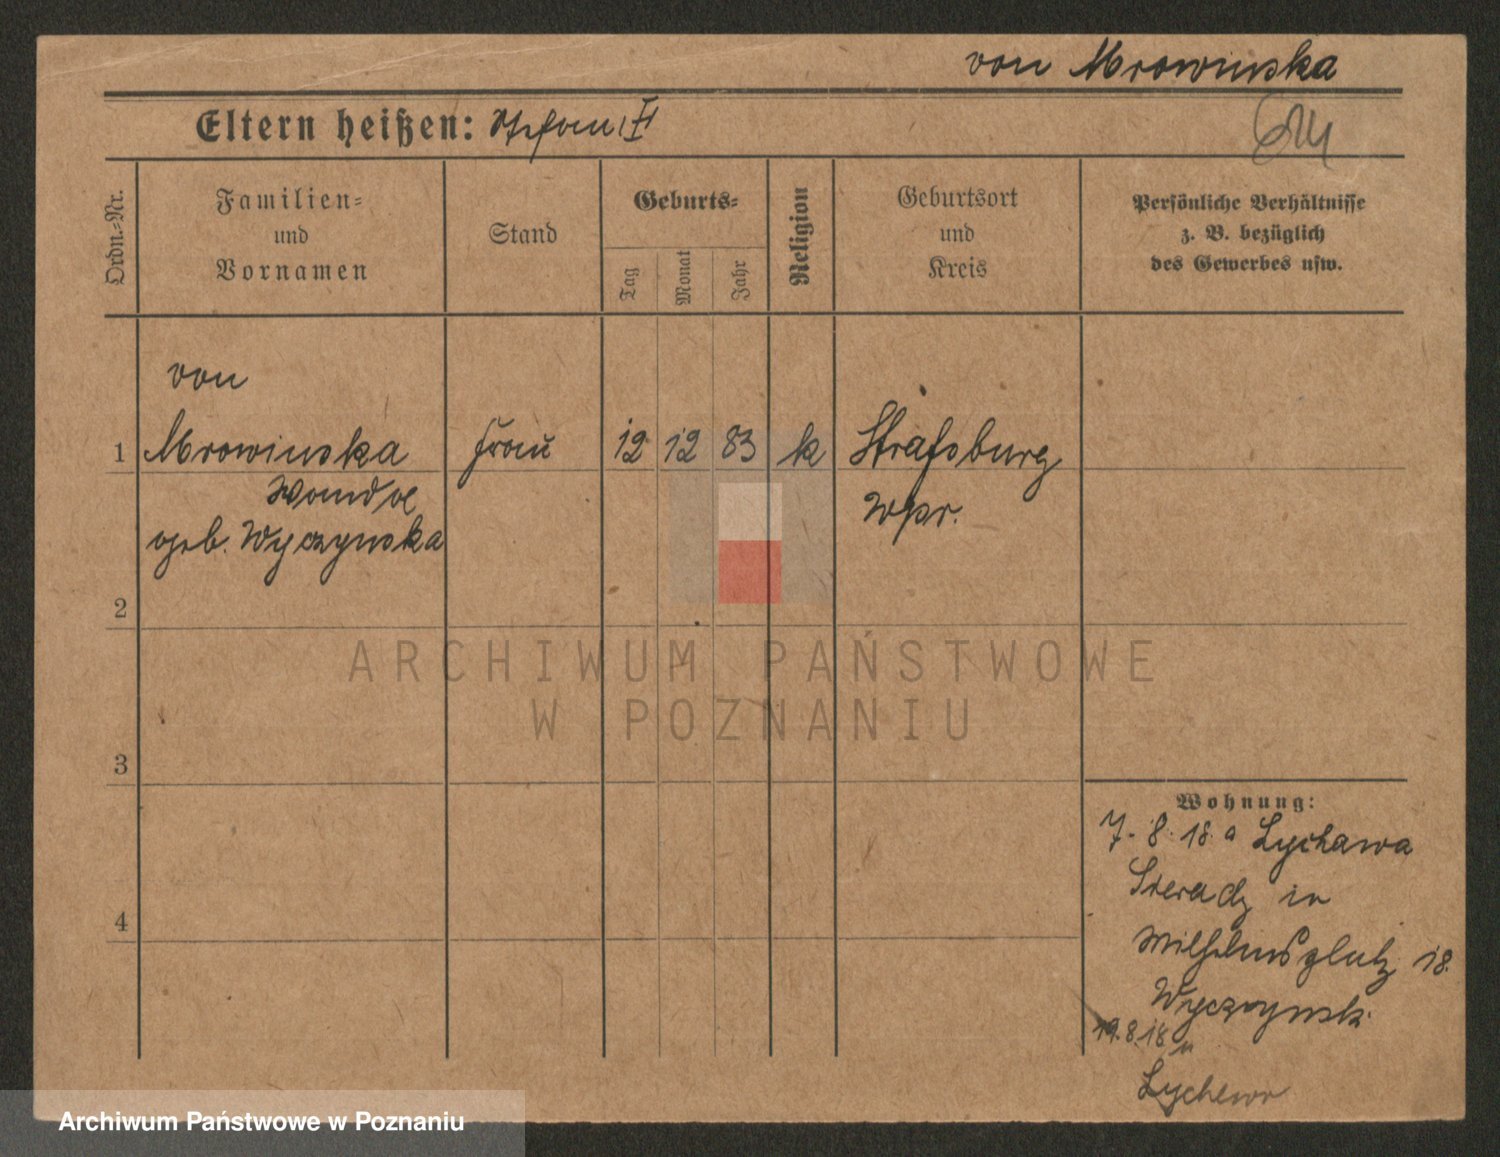 von Mrowinska
Eltern heißen: Stefan
Ordn.-Nr.
Familien-
und
Vornamen
Stand
Geburts-
Tag
Monat
Jahr
Religion
Geburtsort
und
Kreis
Persönliche Verhältnisse
z. B. bezüglich
des Gewerbes usw.
von
1 Mrowinska Frau 12 12 83 k Straßburg
Wanda Wpr.
geb. Wyczynska
2
ARCHIWUM PAŃSTWOWE
W POZNANIU
3
Wohnung:
7. 8. 18. a Lychawa
Sieradz in
4
Wilhelmsplatz 18.
Wyczynsk.
19.8.18. n
Lychewo
Archiwum Państwowe w Poznaniu